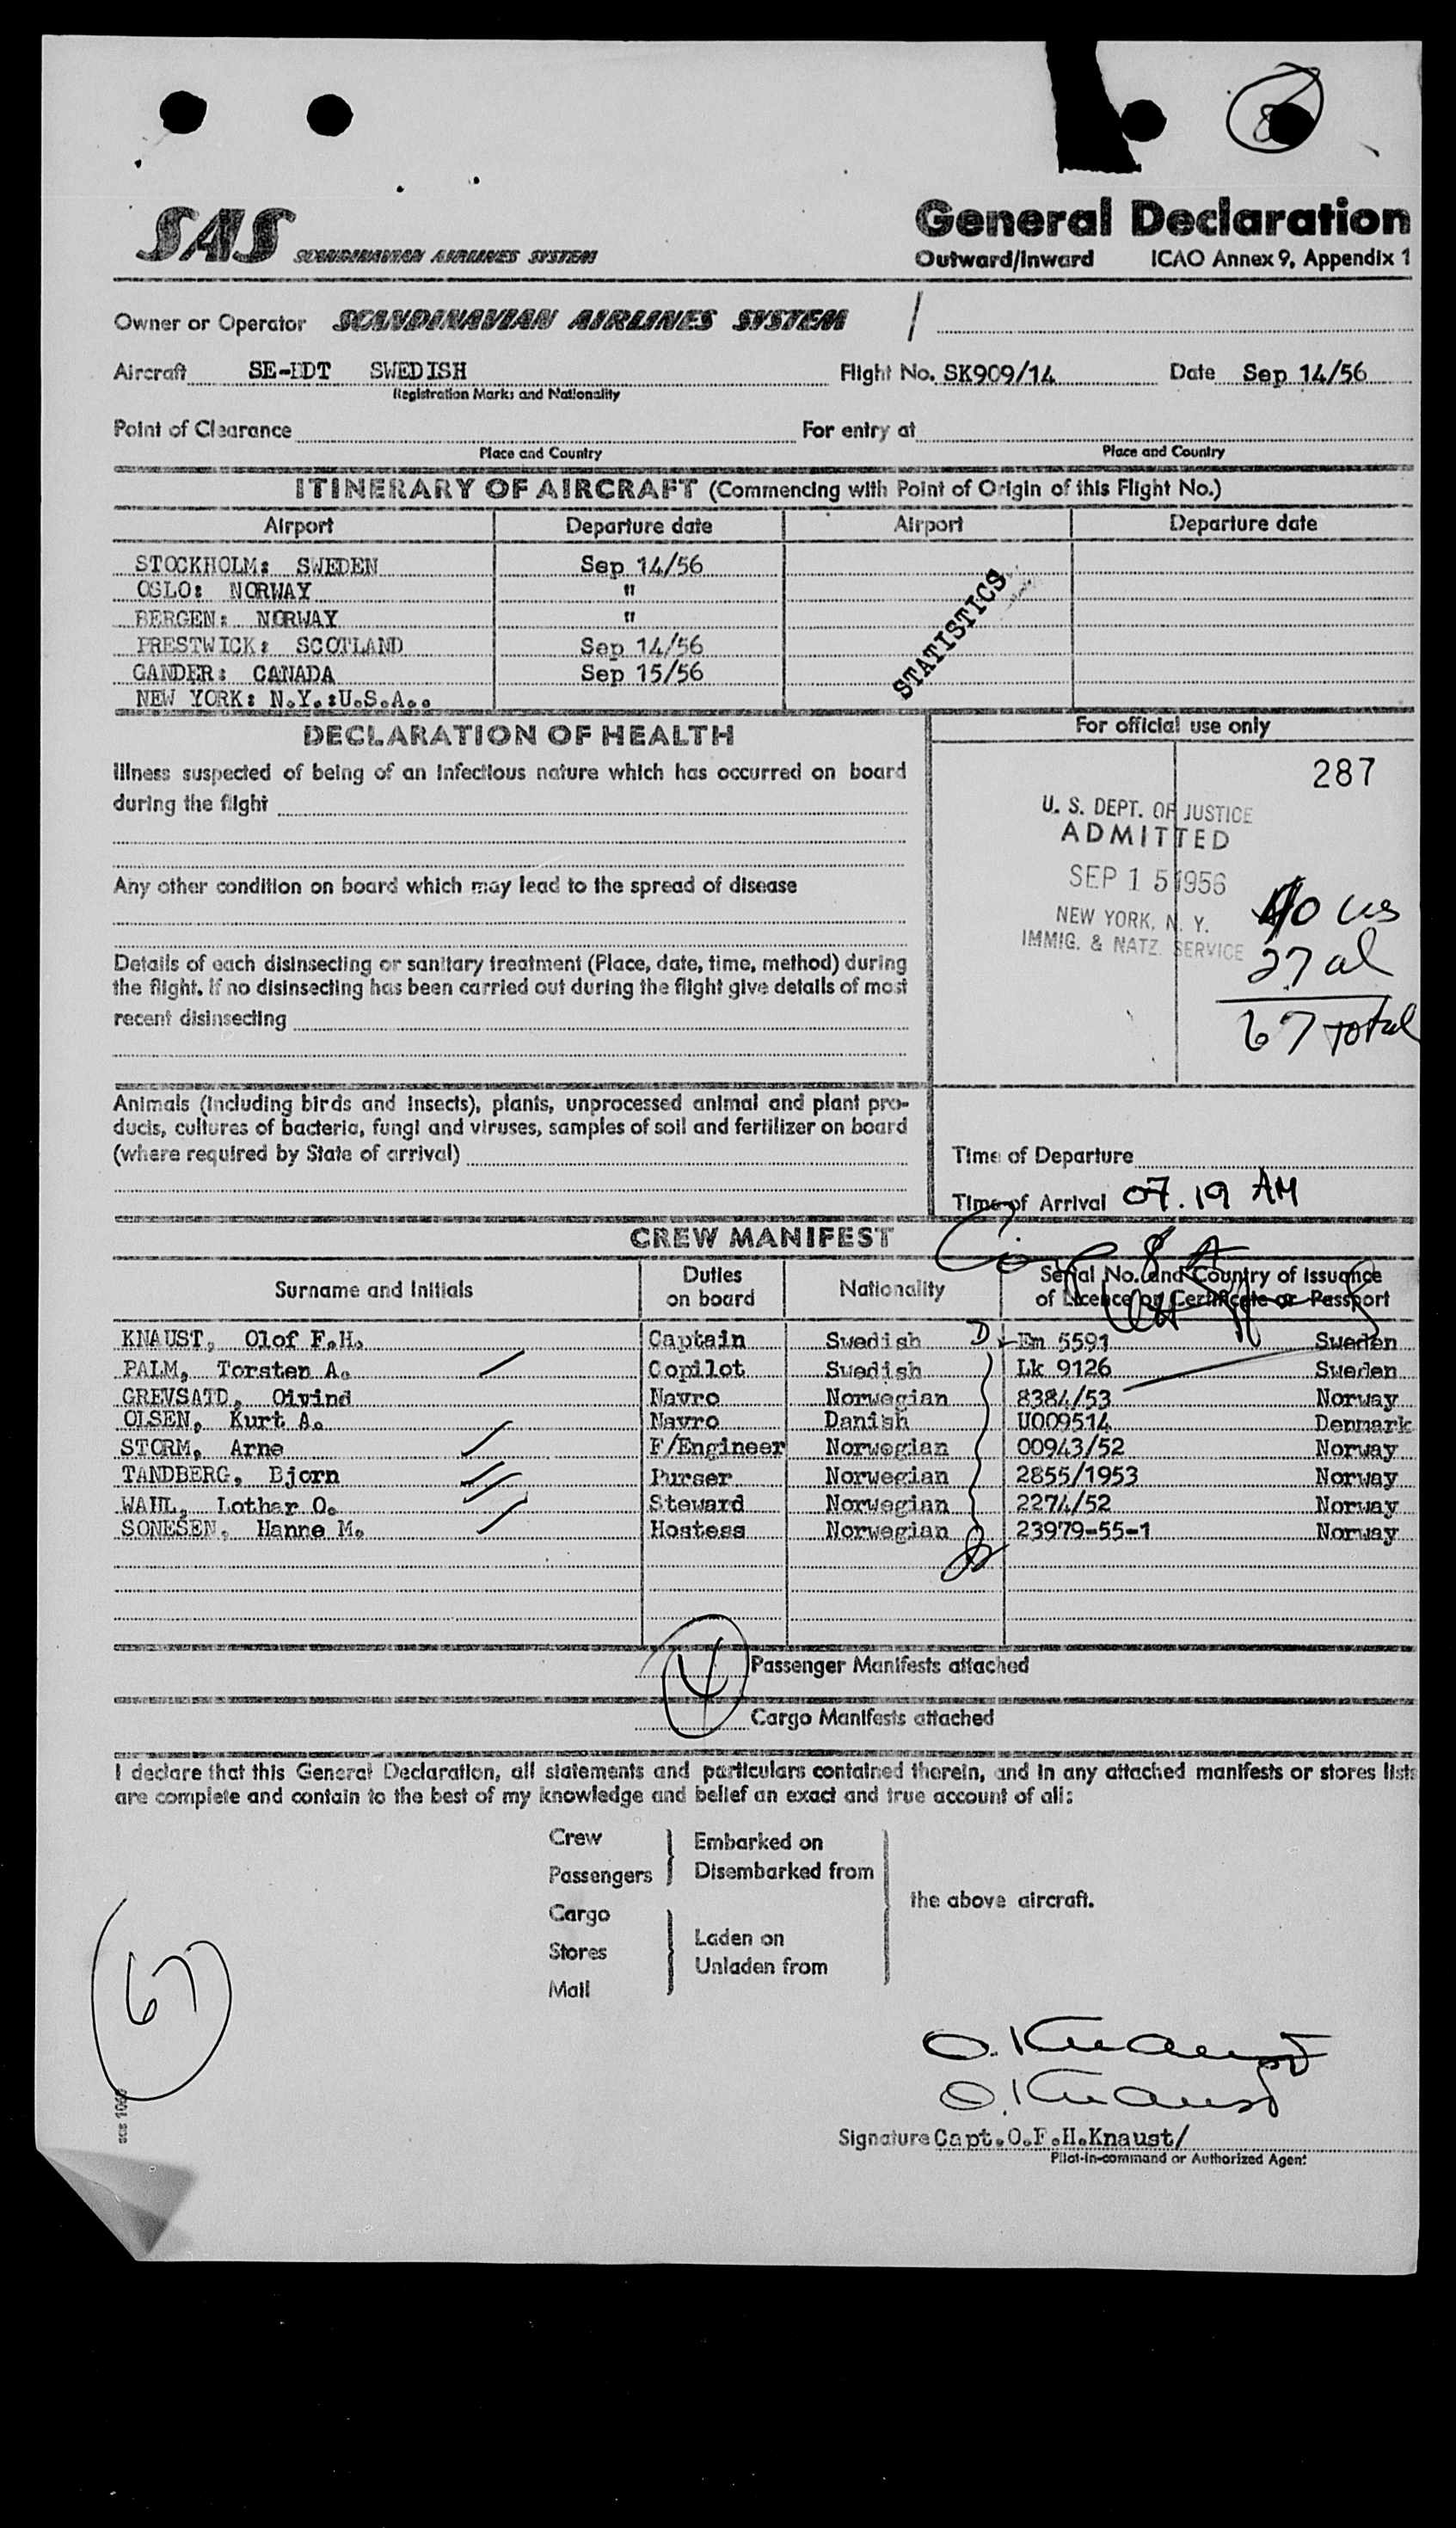 8
SAS SCANDINAVIAN AIRLINES SYSTEM
General Declaration
Outward/Inward ICAO Annex 9, Appendix 1
Owner or Operator SCANDINAVIAN AIRLINES SYSTEM /
Aircraft SE-BDT SWEDISH Flight No. SK909/14 Date Sep 14/56
Registration Marks and Nationality
Point of Clearance For entry at
Place and Country Place and Country
ITINERARY OF AIRCRAFT (Commencing with Point of Origin of this Flight No.)
Airport Departure date Airport Departure date
STOCKHOLM: SWEDEN Sep 14/56
OSLO: NORWAY "
BERGEN: NORWAY "
PRESTWICK: SCOTLAND Sep 14/56
GANDER: CANADA Sep 15/56
NEW YORK: N.Y.:U.S.A..
STATISTICS
DECLARATION OF HEALTH
Illness suspected of being of an infectious nature which has occurred on board
during the flight
Any other condition on board which may lead to the spread of disease
Details of each disinsecting or sanitary treatment (Place, date, time, method) during
the flight. If no disinsecting has been carried out during the flight give details of most
recent disinsecting
Animals (including birds and insects), plants, unprocessed animal and plant pro-
ducts, cultures of bacteria, fungi and viruses, samples of soil and fertilizer on board
(where required by State of arrival)
For official use only
287
U. S. DEPT. OF JUSTICE
ADMITTED
SEP 15 1956
NEW YORK, N. Y.
IMMIG. & NATZ. SERVICE
40 us
27 al
67 total
Time of Departure
Time of Arrival 07.19 AM
CREW MANIFEST
Surname and Initials Duties on board Nationality Serial No. and Country of Issuance of Licence or Certificate or Passport
KNAUST, Olof F.H. Captain Swedish D Em 5591 Sweden
PALM, Torsten A. Copilot Swedish Lk 9126 Sweden
GREVSATD, Oivind Navro Norwegian 8384/53 Norway
OLSEN, Kurt A. Navro Danish U009514 Denmark
STORM, Arne F/Engineer Norwegian 00943/52 Norway
TANDBERG, Bjorn Purser Norwegian 2855/1953 Norway
WAHL, Lothar O. Steward Norwegian 2274/52 Norway
SONESEN, Hanne M. Hostess Norwegian 23979-55-1 Norway
4 Passenger Manifests attached
Cargo Manifests attached
I declare that this General Declaration, all statements and particulars contained therein, and in any attached manifests or stores lists
are complete and contain to the best of my knowledge and belief an exact and true account of all:
Crew
Passengers
Cargo
Stores
Mail
Embarked on
Disembarked from
Laden on
Unladen from
the above aircraft.
67
O. Knaust
O. Knaust
Signature Capt.O.F.H.Knaust/
Pilot-in-command or Authorized Agent